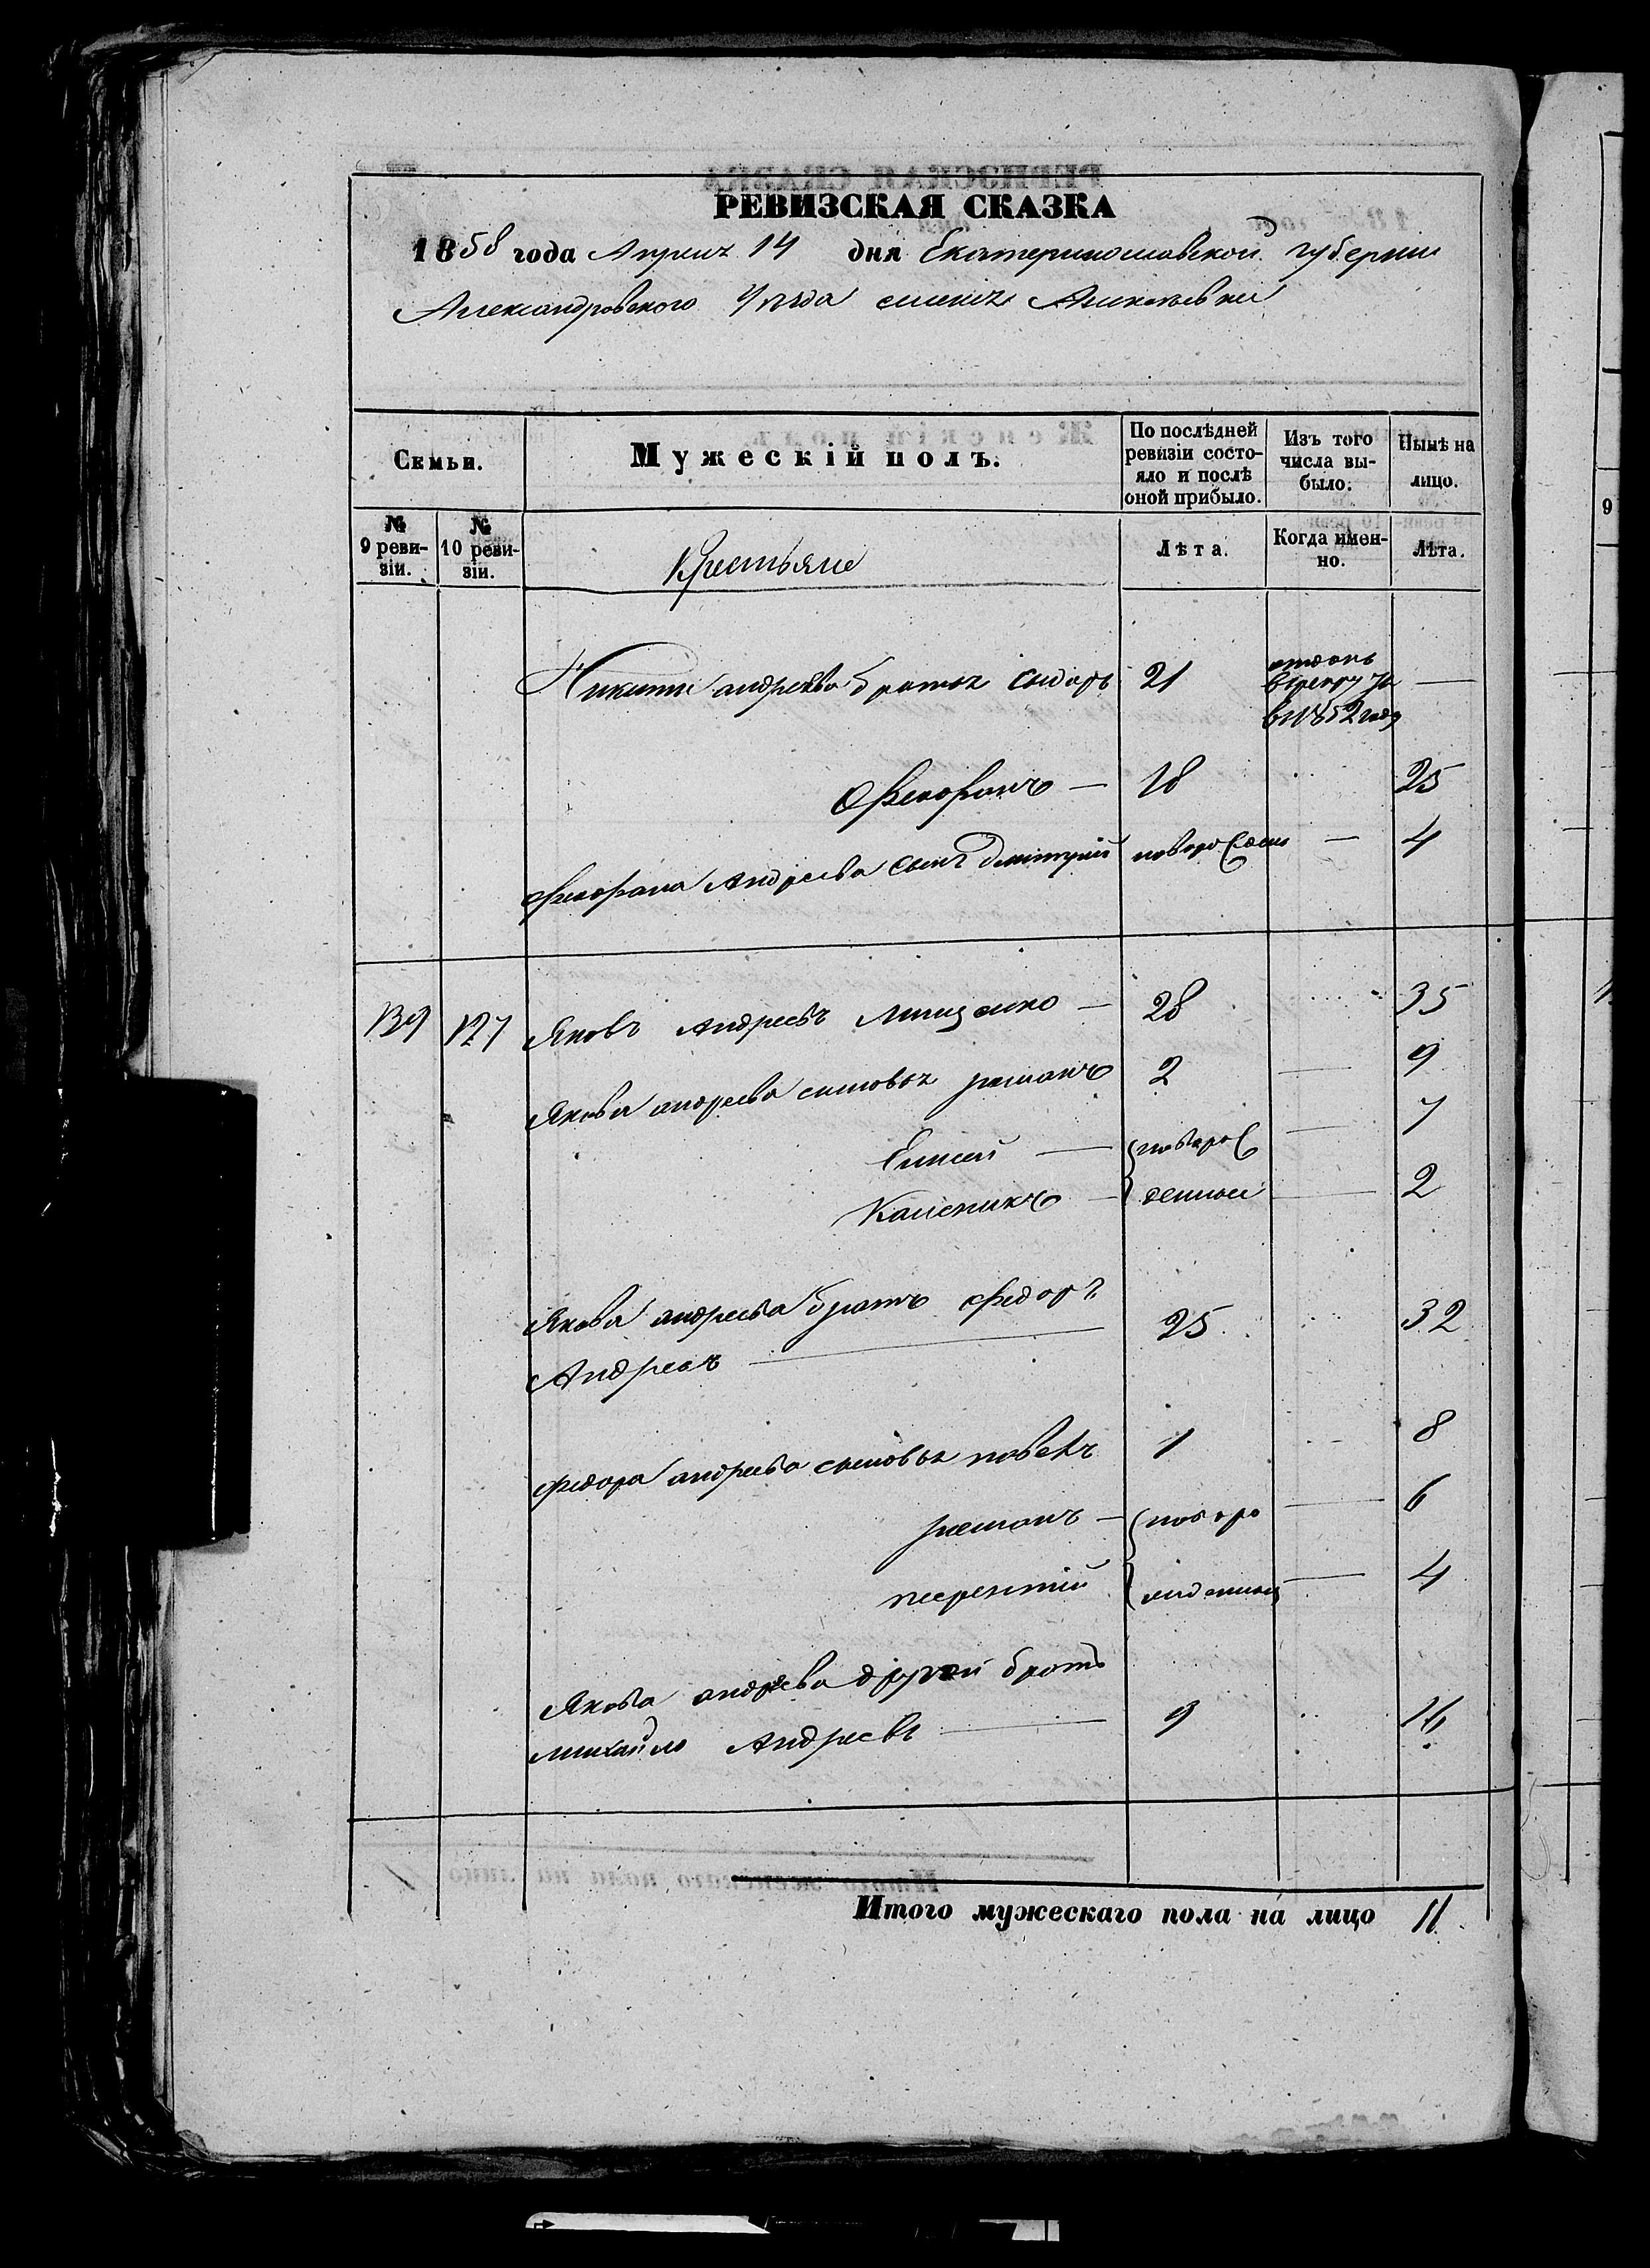 РЕВИЗСКАЯ СКАЗКА
1858 года Апреля 14 дня Екатеринославской губернии
Александровского Уезда
Семьи.
Мужескій полъ.
По послѣдней ревизіи состояло и послѣ оной прибыло.
Изъ того числа выбыло.
Нынѣ на лицо.
№ 9 ревизіи.
№ 10 ревизіи.
Крестьяне
Лѣта.
Когда именно.
Лѣта.
Никиты андреева братья Сидоръ 21 отданъ в рекруты в 1852 году —
Феофанъ — 18 25
Феофана Андреева сынъ дмитрий новорожден — 4
139 127 Яковъ Андреевъ — 28 35
Якова андреева сыновья романъ 2 — 9
Елисей — новорож — 7
Каленикъ — денныи — 2
Якова андреева братъ федоръ
Андреевъ — 25 32
федора андреева сыновья 1 8
романъ — новоро — 6
терентий — 4
Якова андреева другой братъ
михайло Андреевъ — 9 16
Итого мужескаго пола на лицо 11